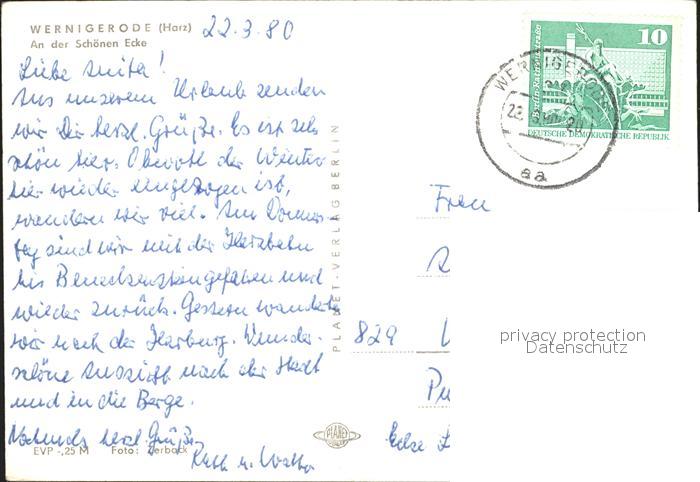 WERNIGERODE (Harz) 22.3.80
An der Schönen Ecke
Liebe Anita!
Aus unserem Urlaub senden
wir Dir herzl. Grüße. Es ist sehr
schön hier. Obwohl der Winter
hier wieder eingezogen ist,
wandern wir viel. Am Donners-
tag sind wir mit der Harzbahn
bis Benneckenstein gefahren und
wieder zurück. Gestern wanderten
wir nach der Harburg. Wunder-
schöne Aussicht nach der Stadt
und in die Berge.
Nochmals herzl. Grüße
Ruth u.
EVP -,25 M Foto: Zerback
PLANET-VERLAG BERLIN
PLANET
10
DEUTSCHE DEMOKRATISCHE REPUBLIK
WERNIGERODE
aa
Frau
829
Ecke
privacy protection
Datenschutz